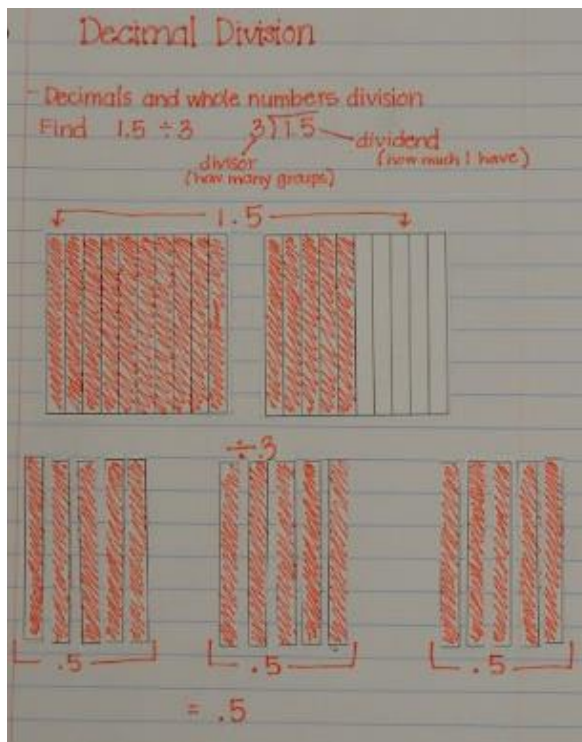 Decimal Division
- Decimals and whole numbers division
Find 1.5 ÷ 3 3)1.5
dividend
(how much I have)
divisor
(how many groups)
1.5
÷3
.5 .5 .5
= .5